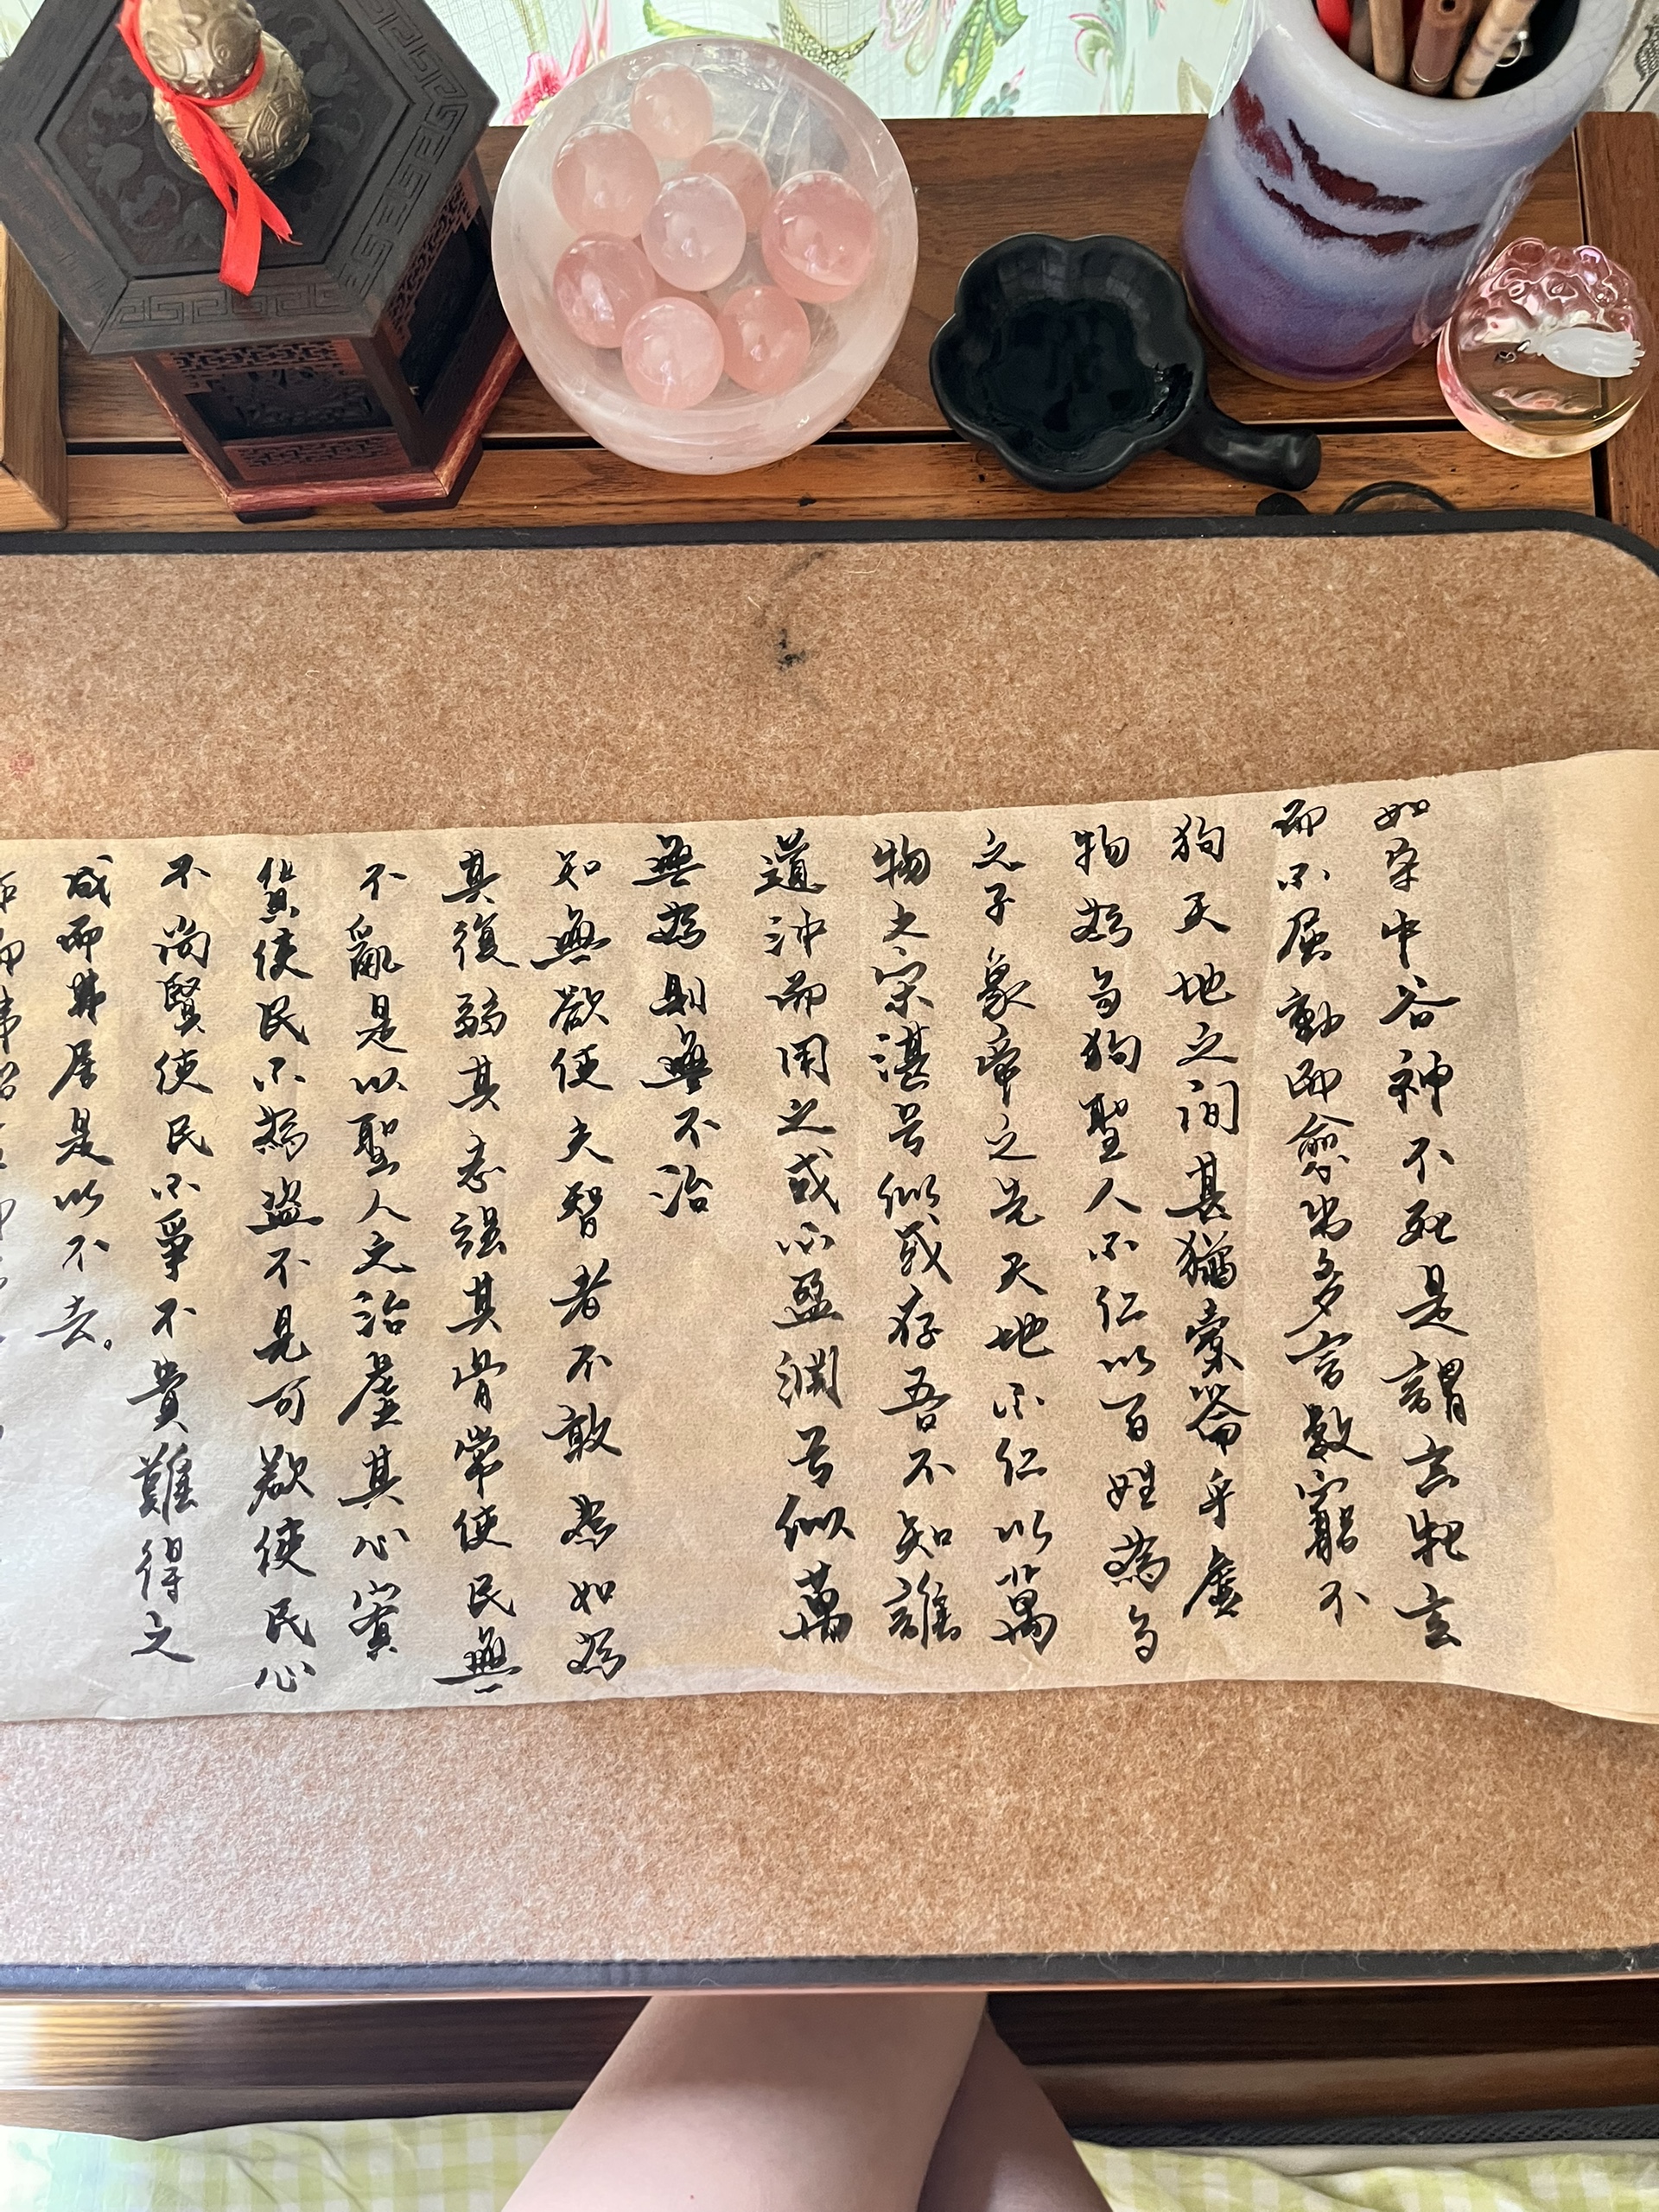 成而弗居是以不去。
不尚賢使民不爭不貴難得之
貨使民不為盜不見可欲使民心
不亂是以聖人之治虛其心實
其復弱其志強其骨常使民無
知無欲使夫智者不敢為如為
無為則無不治
道沖而用之或不盈淵兮似萬
物之宗湛兮似或存吾不知誰
之子象帝之先天地不仁以萬
物為芻狗聖人不仁以百姓為芻
狗天地之間其猶橐籥乎虛
而不屈動而愈出多言數窮不
如守中谷神不死是謂玄牝玄